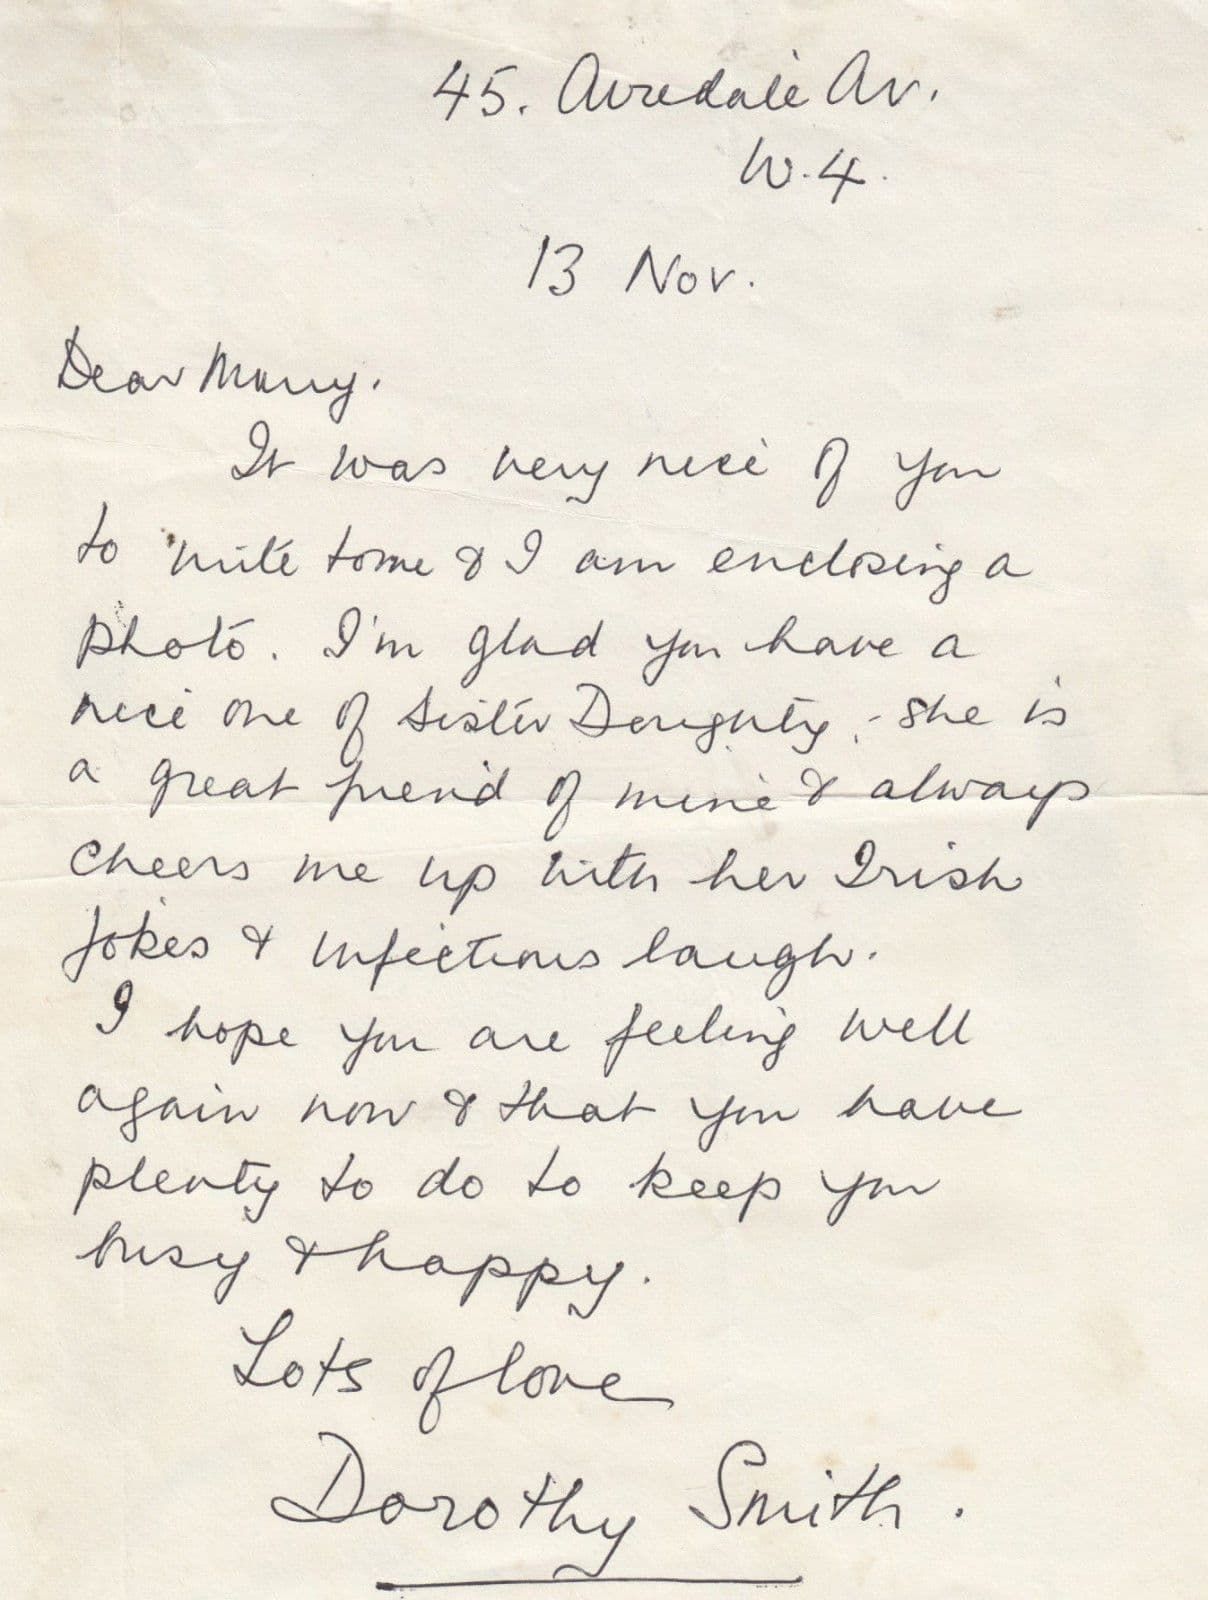 45. Airedale Av.
W.4.
13 Nov.
Dear
It was very nice of you
to write to me & I am enclosing a
photo. I'm glad you have a
nice one of Sister Doughty, - she is
a great friend of mine & always
cheers me up with her Irish
jokes & infectious laugh.
I hope you are feeling well
again now & that you have
plenty to do to keep you
busy & happy.
Lots of love
Dorothy Smith.